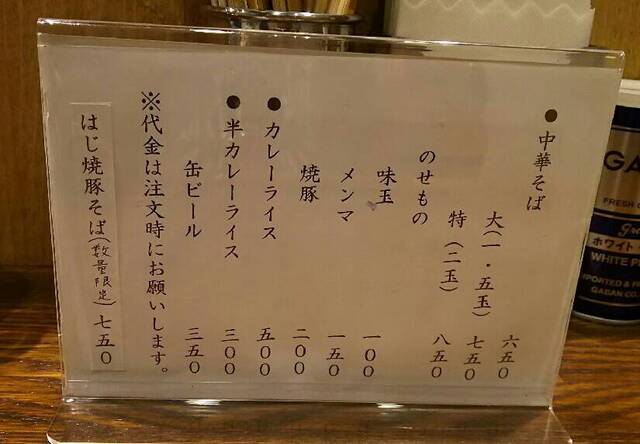 ●中華そば 六五〇
大(一・五玉) 七五〇
特(二玉) 八五〇
のせもの
味玉 一〇〇
メンマ 一五〇
焼豚 二〇〇
●カレーライス 五〇〇
●半カレーライス 三〇〇
缶ビール 三五〇
※代金は注文時にお願いします。
はじ焼豚そば(数量限定)七五〇
GA
FRESH
ホワイト
WHITE PE
IMPORTED &
GABAN CO.